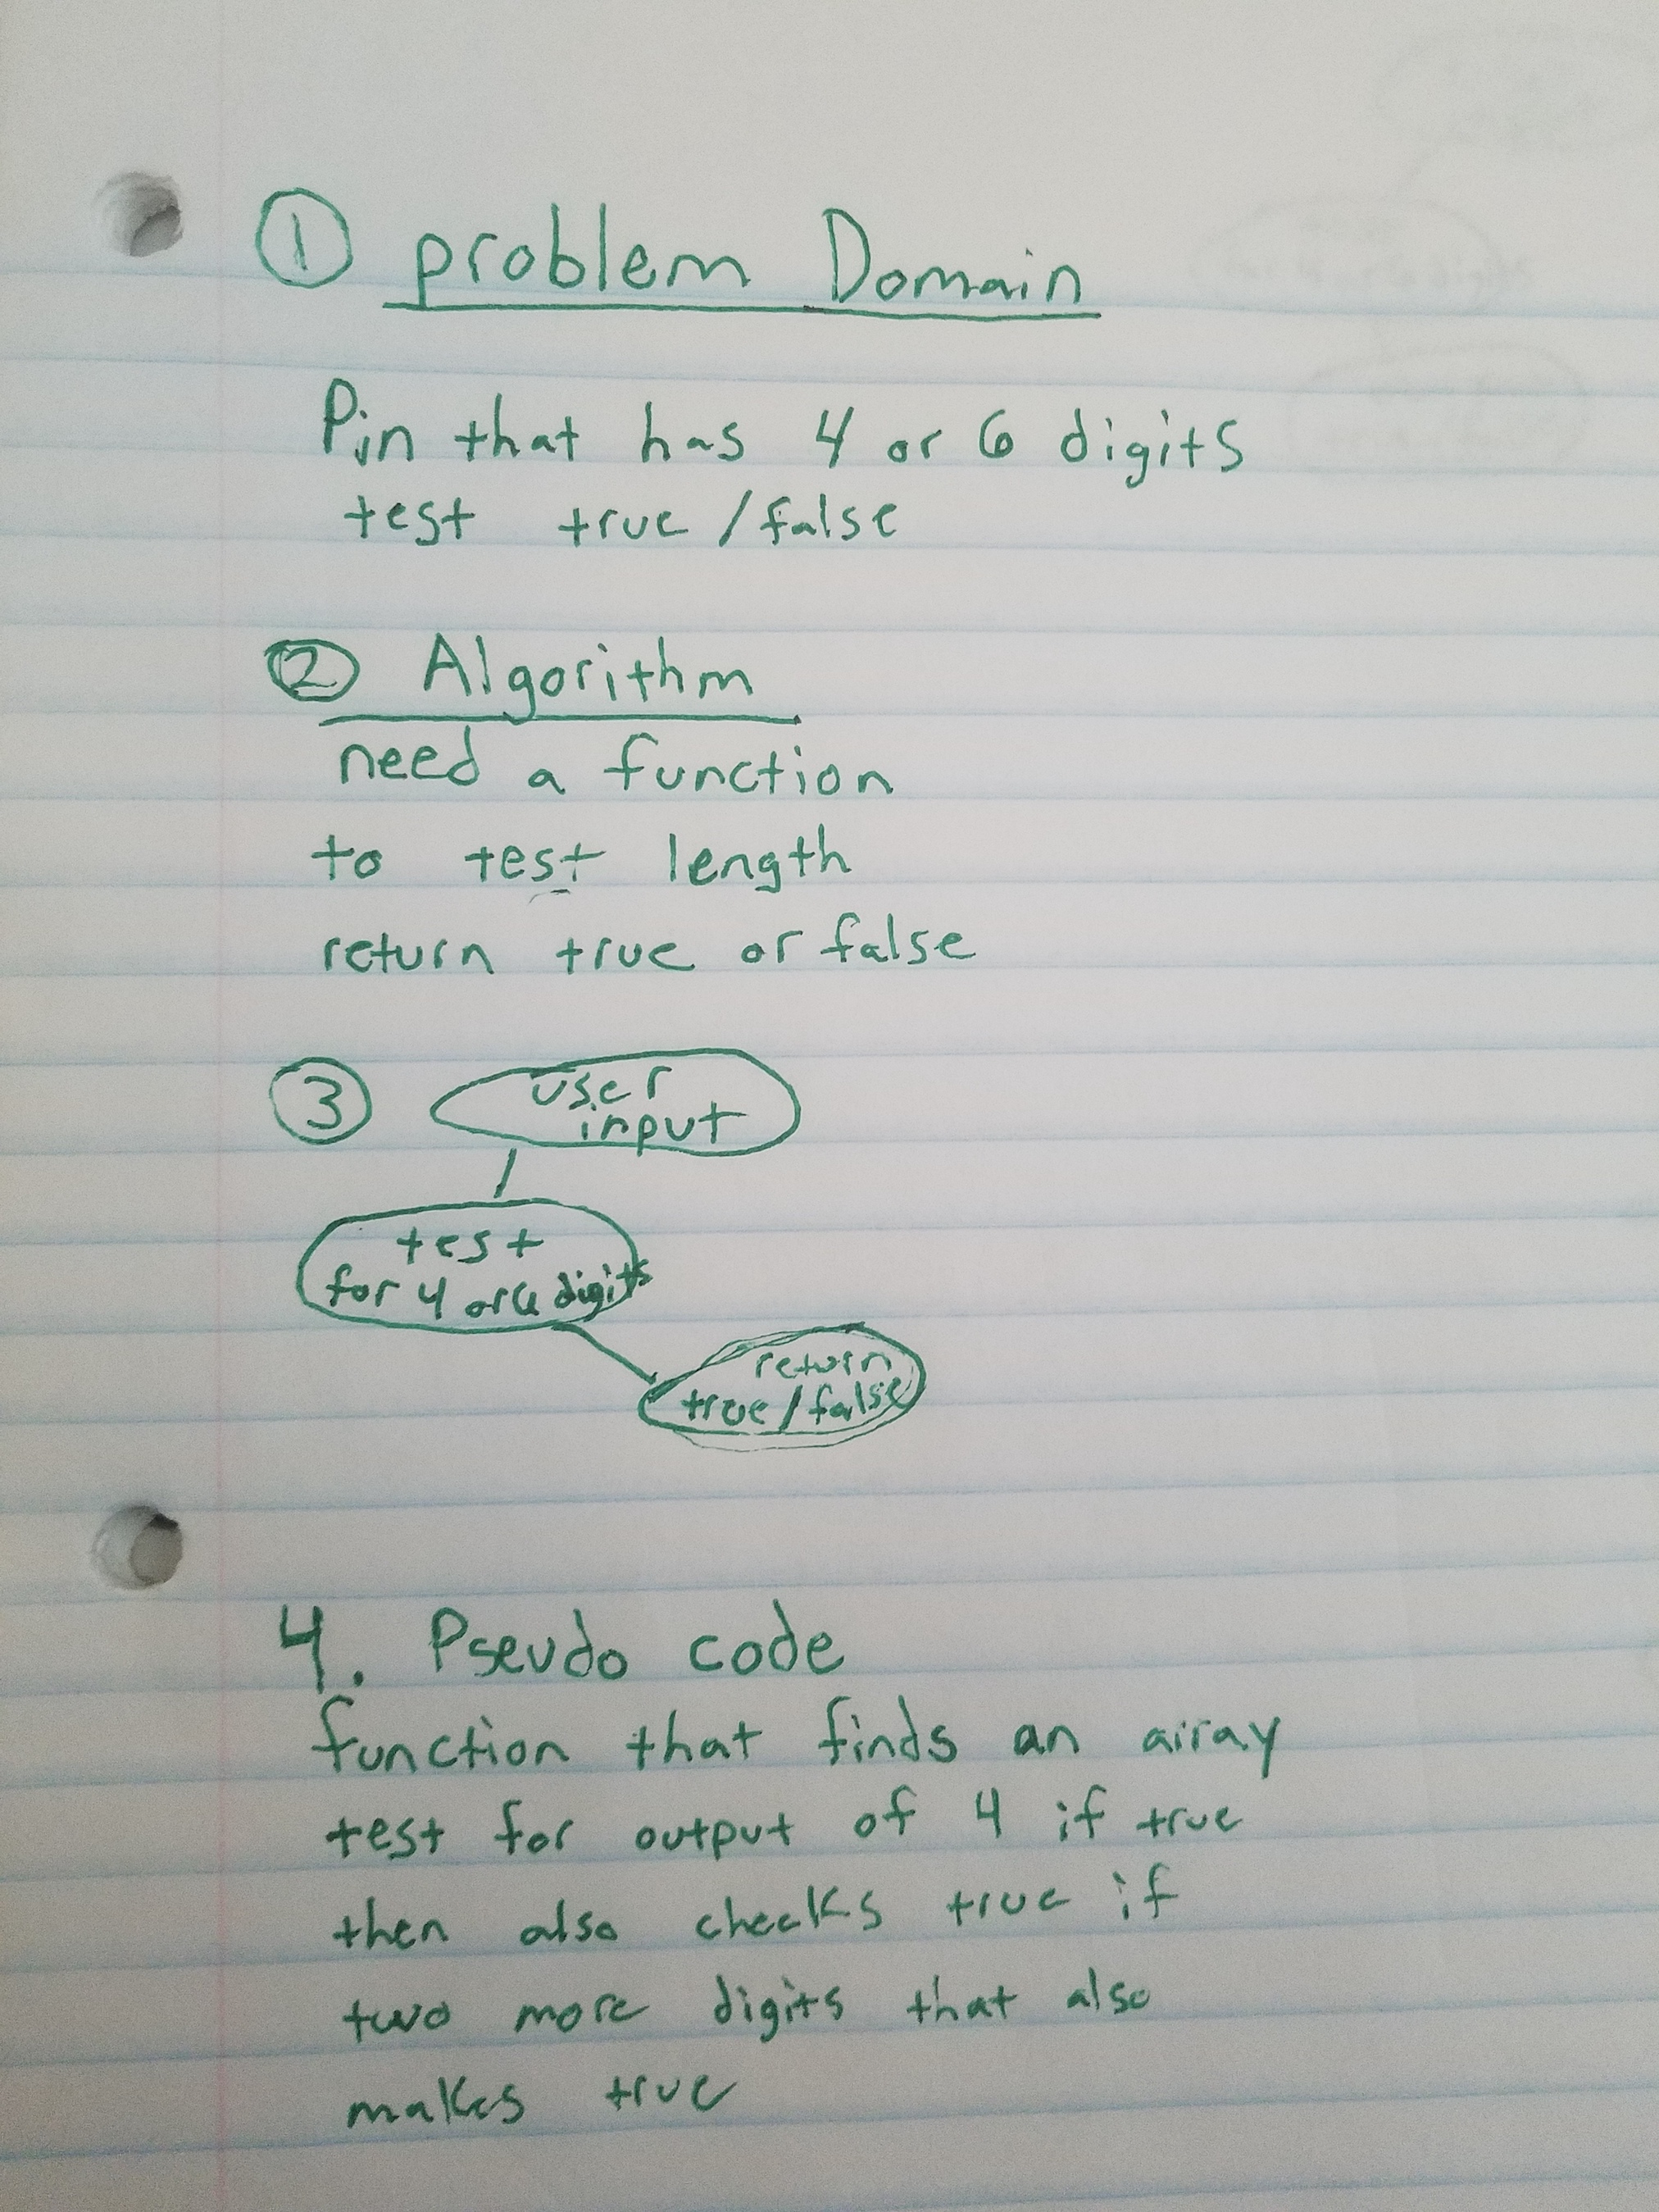 1 problem Domain
Pin that has 4 or 6 digits
test true / false
2 Algorithm
need a function
to test length
return true or false
3 user
input
test
for 4 or 6 digits
return
true / false
4. Pseudo code
function that finds an array
test for output of 4 if true
then also checks true if
two more digits that also
makes true